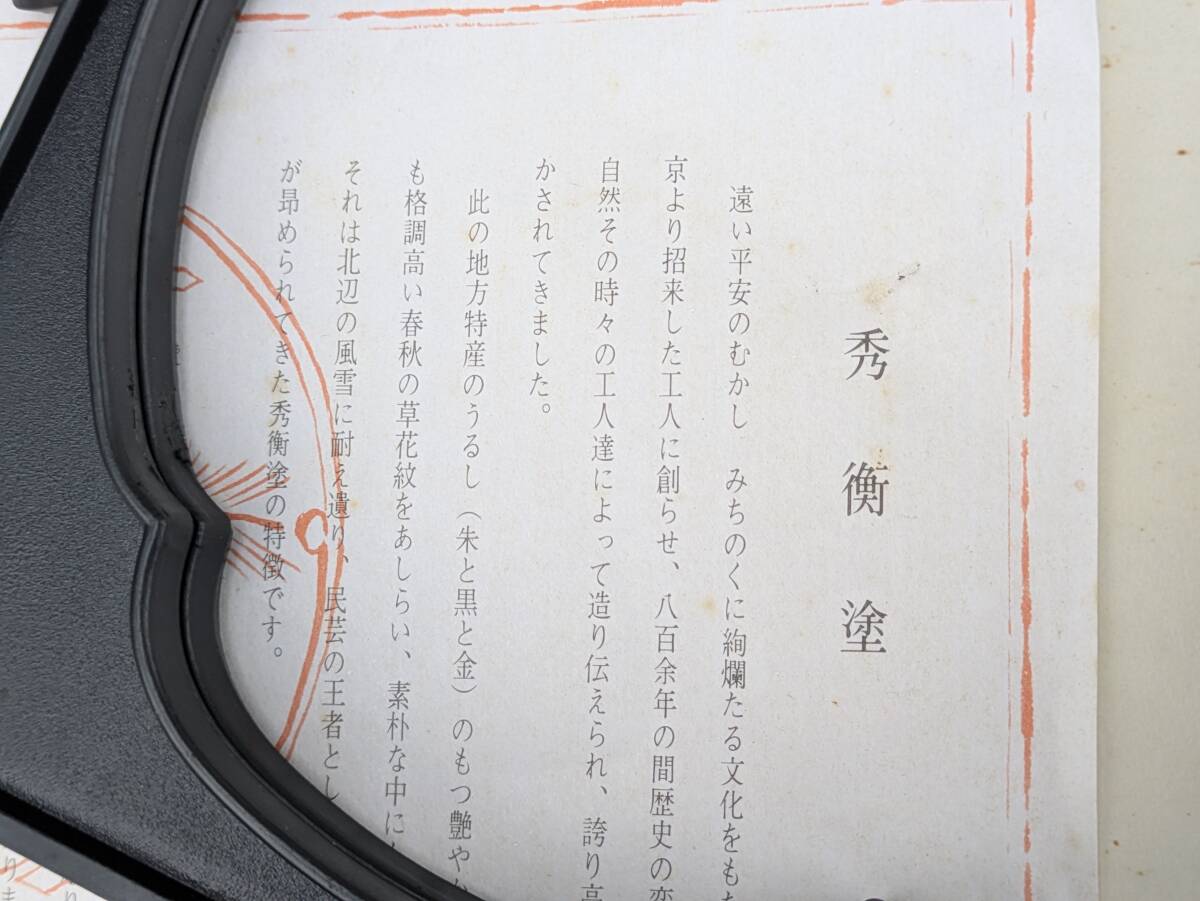 秀衡塗
遠い平安のむかし　みちのくに絢爛たる文化をもた
京より招来した工人に創らせ、八百余年の間歴史の変
自然その時々の工人達によって造り伝えられ、誇り高
かされてきました。
此の地方特産のうるし（朱と黒と金）のもつ艶やか
も格調高い春秋の草花紋をあしらい、素朴な中に
それは北辺の風雪に耐え遺り、民芸の王者とし
が昂められてきた秀衡塗の特徴です。